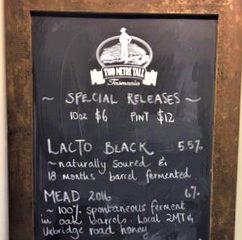 TWO METRE TALL
Tasmania
~ SPECIAL RELEASES ~
10oz $6 PINT $12
LACTO BLACK 5.5%
~ naturally soured &
18 months barrel fermented
MEAD 2016 6%
~ 100% spontaneous ferment
in oak barrels. Local 2MT &
Uxbridge road honey